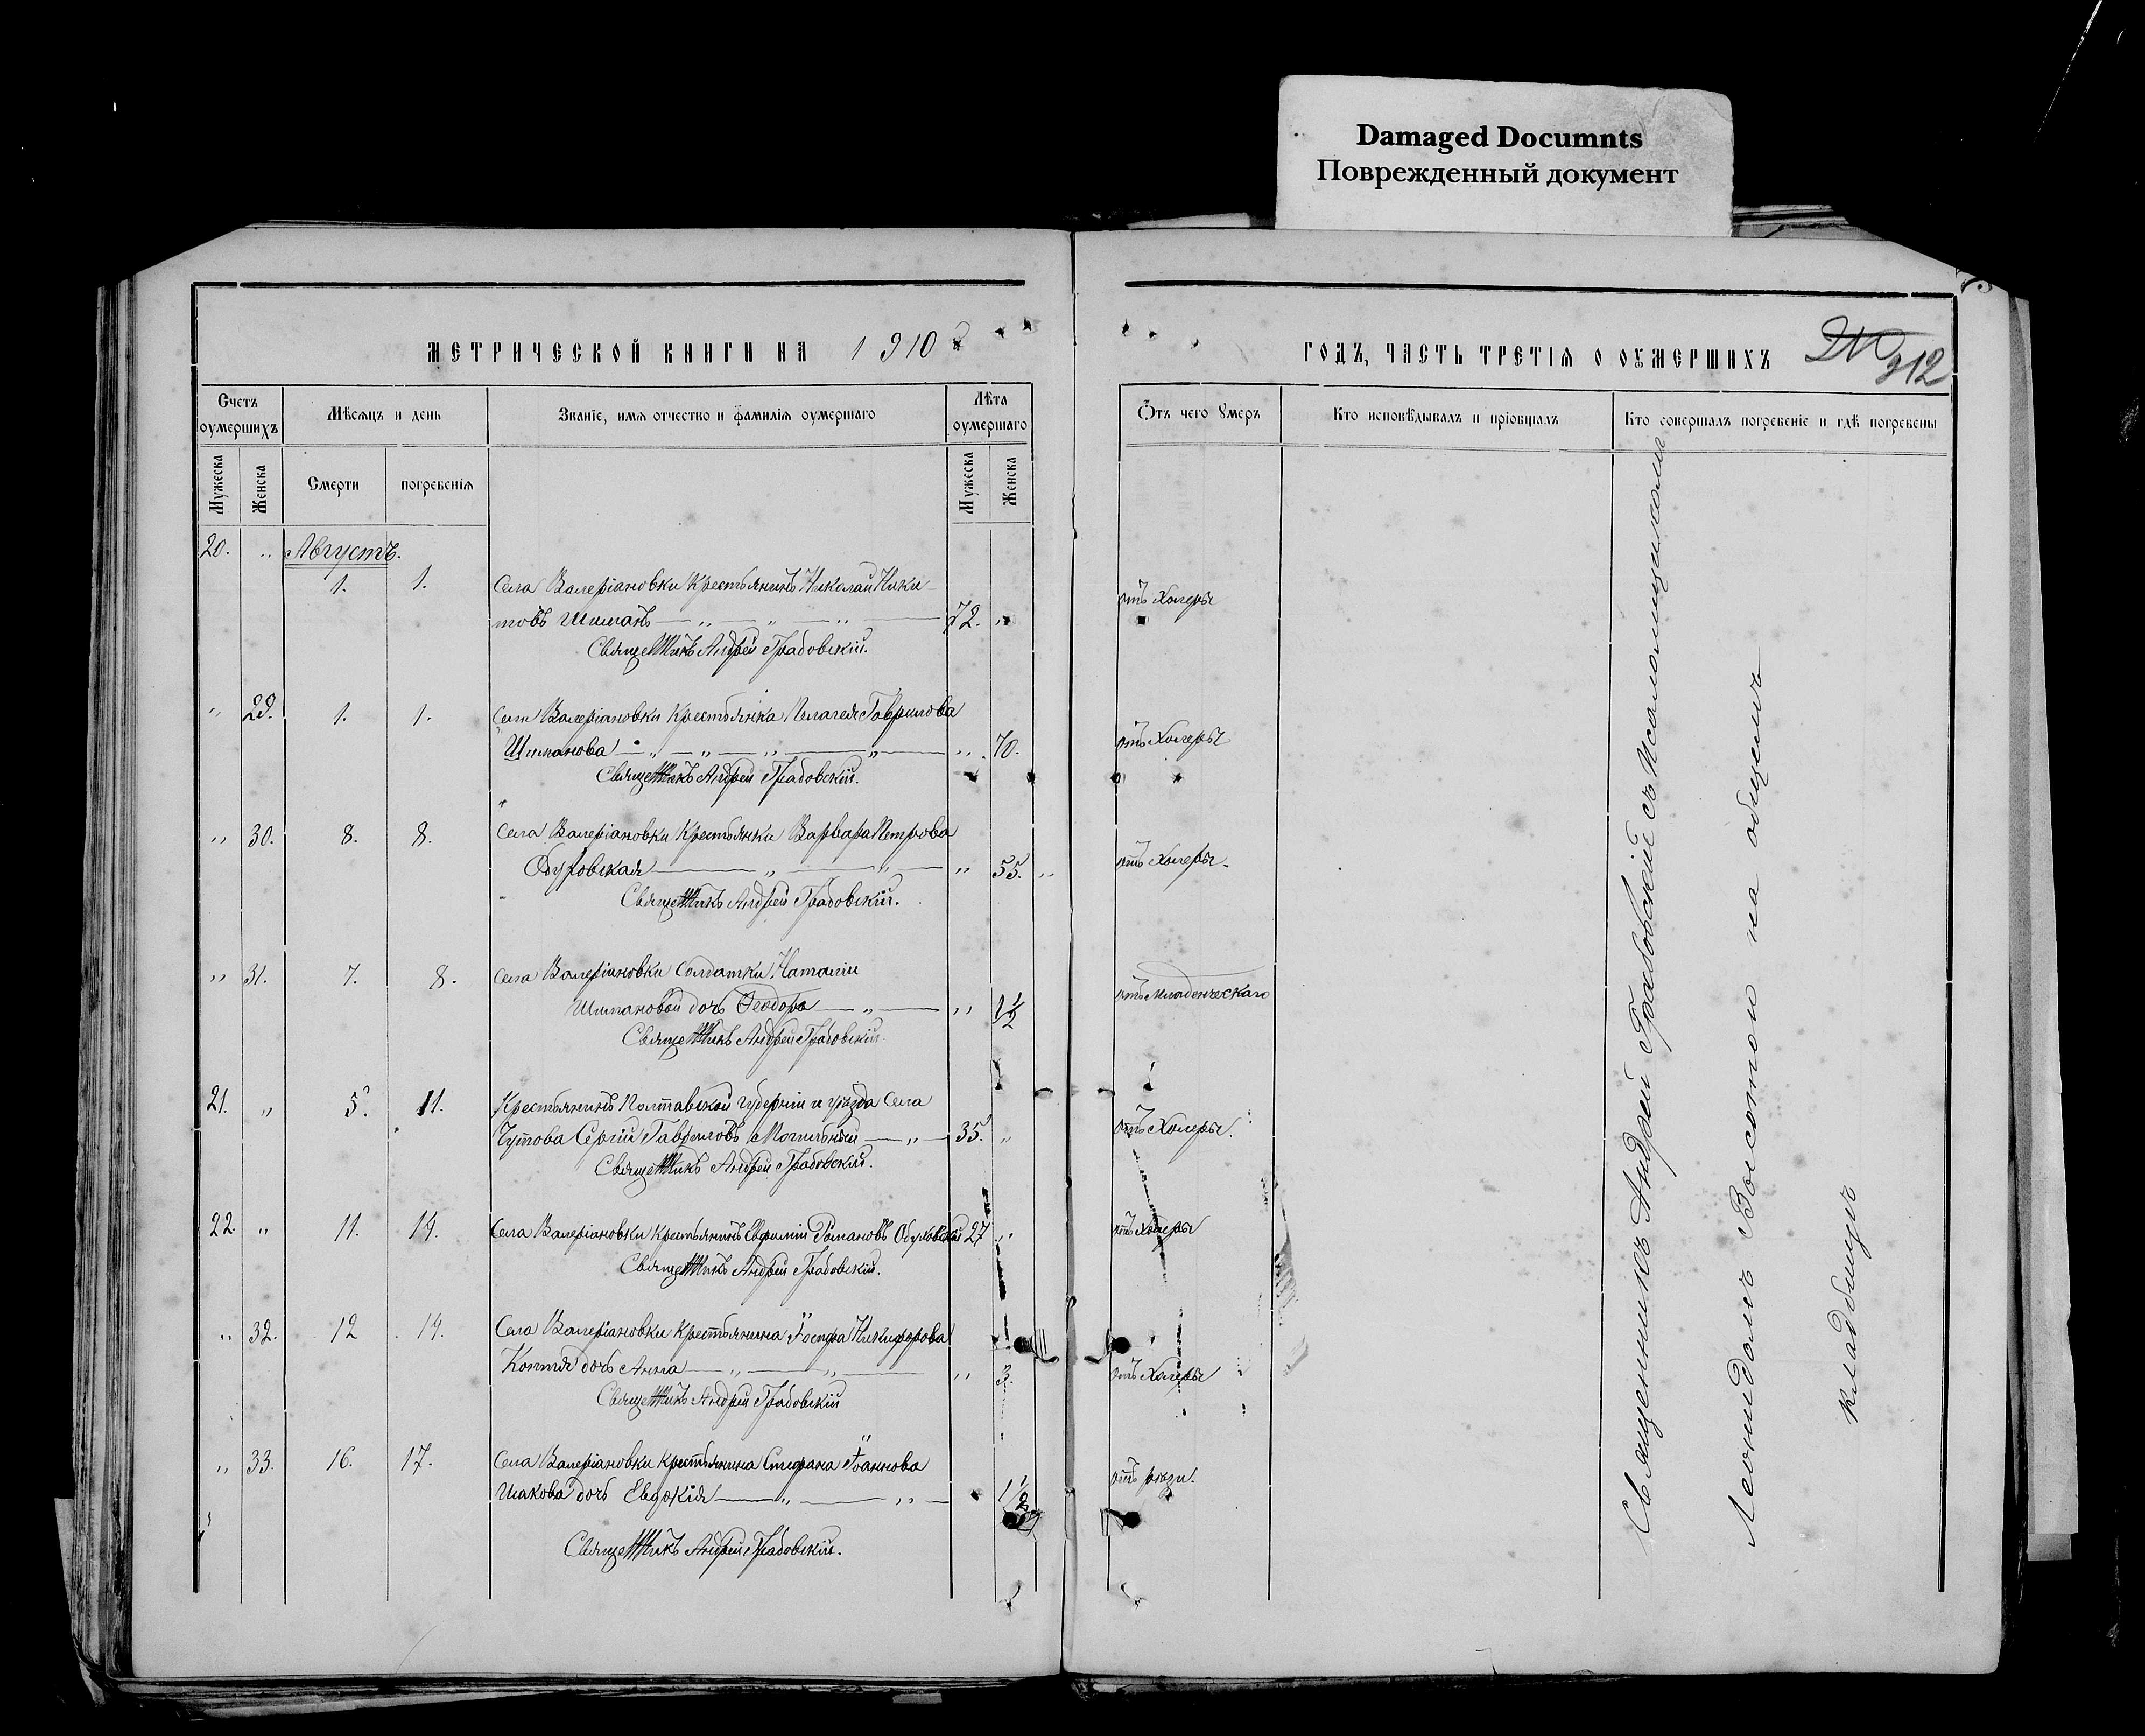 Damaged Documnts
Поврежденный документ
МЕТРИЧЕСКОЙ КНИГИ НА 1910
ГОДЪ, ЧАСТЬ ТРЕТІЯ О ОУМЕРШИХЪ
212
Счетъ оумершихъ
Мѣсяцъ и день
Званіе, имя отчество и фамилія оумершаго
Лѣта оумершаго
Отъ чего умеръ
Кто исповѣдывалъ и пріобщалъ
Кто совершалъ погребеніе и гдѣ погребены
Мужеска
Женска
Смерти
погребенія
Мужеска
Женска
20. „ Августъ.
1. 1. Села Валеріановки Крестьянинъ Николай Ники-
товъ Шиманъ 72. „ отъ Холеры
Священникъ Андрей Грабовскій.
„ 29. 1. 1. Села Валеріановки Крестьянка Пелагея Гаврилова
Шиманова „ 70. отъ Холеры
Священникъ Андрей Грабовскій.
„ 30. 8. 8. Села Валеріановки Крестьянка Варвара Петрова
Обуховская „ 55. отъ Холеры.
Священникъ Андрей Грабовскій.
„ 31. 7. 8. Села Валеріановки Солдатки Наталіи
Шимановой дочь Ѳеодора „ 1 1/2 отъ Младенческаго
Священникъ Андрей Грабовскій.
21. „ 5. 11. Крестьянинъ Полтавской губерніи и уѣзда Села
Чутова Сергій Гавриловъ Могильный 35. „ отъ Холеры.
Священникъ Андрей Грабовскій.
22. „ 11. 14. Села Валеріановки Крестьянинъ Евфимій Романовъ Обуховскій 27 „ отъ Холеры
Священникъ Андрей Грабовскій.
„ 32. 12 14. Села Валеріановки Крестьянина Іосифа Никифорова
дочь Анна „ 3. отъ Холеры
Священникъ Андрей Грабовскій
„ 33. 16. 17. Села Валеріановки Крестьянина Стефана Іоаннова
дочь Евдокія 1 1/2 отъ
Священникъ Андрей Грабовскій.
Священникъ Андрей Грабовскій съ Псаломщикомъ
Леонидомъ Высотой на общемъ
кладбищѣ